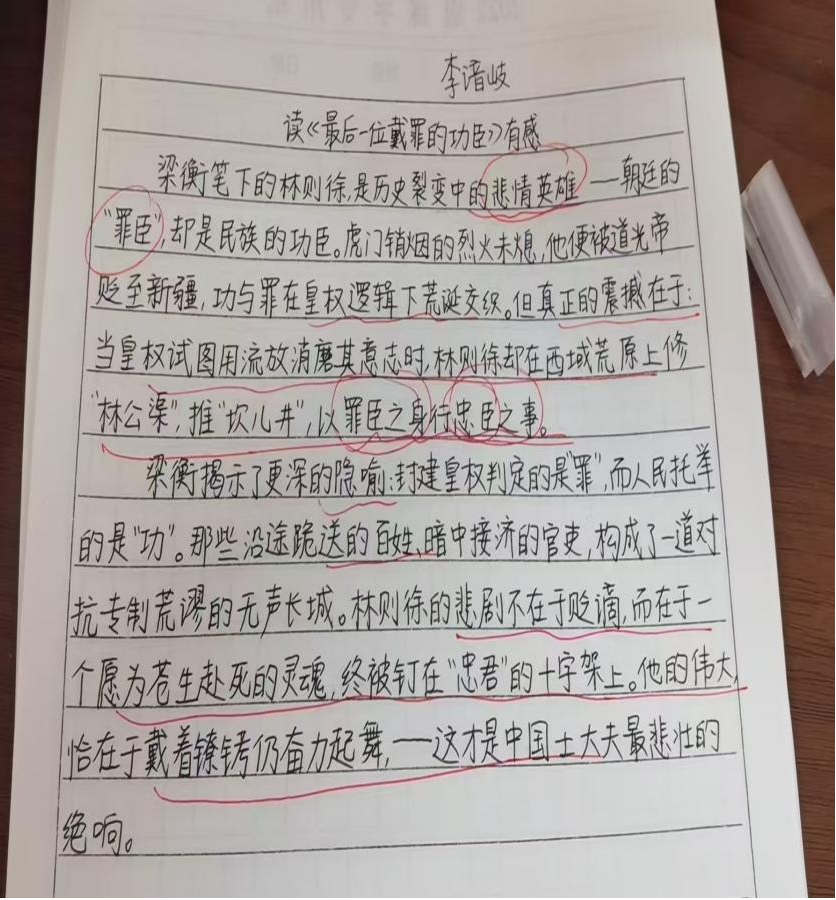 李谙岐
读《最后一位戴罪的功臣》有感
梁衡笔下的林则徐,是历史裂变中的悲情英雄——朝廷的
“罪臣”,却是民族的功臣。虎门销烟的烈火未熄,他便被道光帝
贬至新疆,功与罪在皇权逻辑下荒诞交织。但真正的震撼在于:
当皇权试图用流放消磨其意志时,林则徐却在西域荒原上修
“林公渠”,推“坎儿井”,以罪臣之身行忠臣之事。
梁衡揭示了更深的隐喻:封建皇权判定的是“罪”,而人民托举
的是“功”。那些沿途跪送的百姓、暗中接济的官吏,构成了一道对
抗专制荒谬的无声长城。林则徐的悲剧不在于贬谪,而在于一
个愿为苍生赴死的灵魂,终被钉在“忠君”的十字架上。他的伟大,
恰在于戴着镣铐仍奋力起舞,——这才是中国士大夫最悲壮的
绝响。